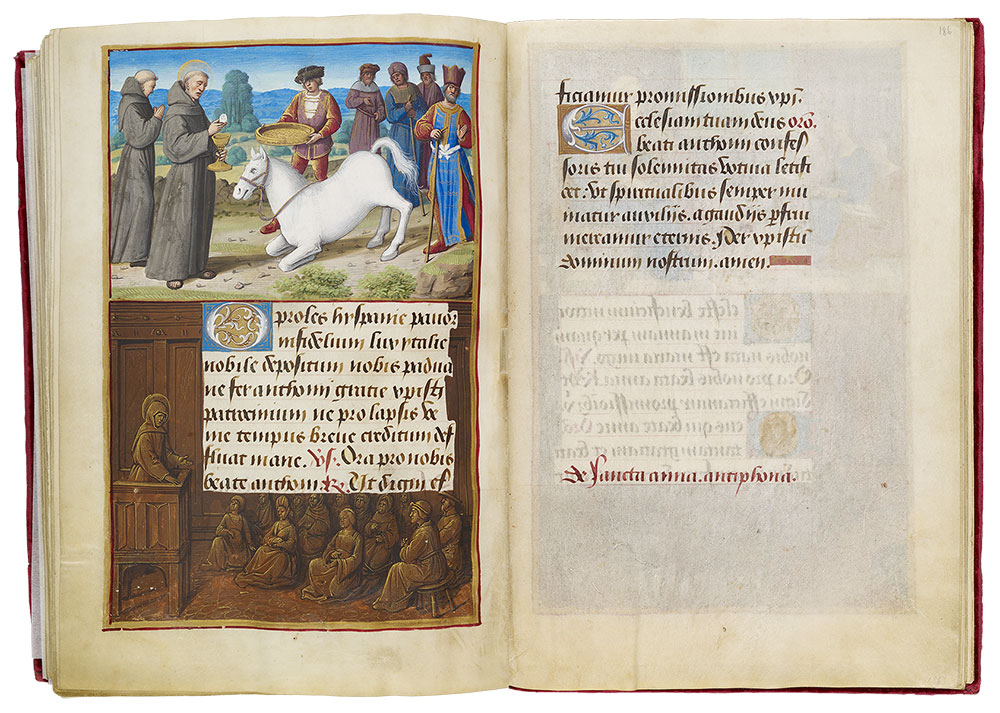 O proles hyspanie pavor
infidelium lux ytalie
nobile depositum nobis padua
ne fer anthoni gratie xpristi
patrocinium ne prolapsis ve
nie tempus breve creditum def
fluat mane. Vs. Ora pro nobis
beate anthoni R Ut digni ef
186
ficiamur promissionibus xpi.
Ecclesiam tuam deus oro.
beati anthoni confes
soris tui solemnitas votiva letifi
cet. Ut spiritualibus semper mu
niatur auxilijs. a gaudijs pfrui
mereamur eternis. Per xpistū
dominum nostrum. amen.
de sancta anna. antiphona.